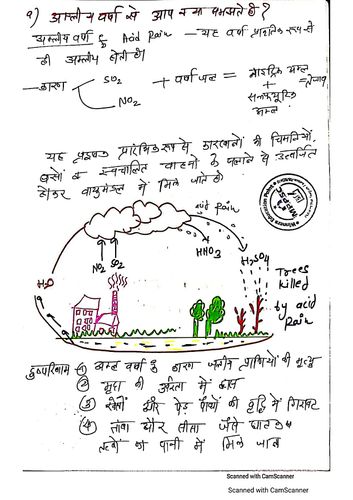 9) अम्लीय वर्षा से आप क्या समझते है ?
अम्लीय वर्षा & Acid Rain - यह वर्षा प्राकृतिक रूप से
ही अम्लीय होती है।
कारण SO2 + वर्षा जल = नाइट्रिक अम्ल
NO2 + सल्फ्यूरिक अम्ल
यह प्रदूषण प्रारंभिक रूप से कारखानों की चिमनियों,
बसों व स्वचालित वाहनो के जलाने से उत्सर्जित
होकर वायुमंडल में मिल जाते है।
acid Rain
NO2 SO2
HNO3
H2O
H2SO4
Trees
killed
by acid
Rain
दुष्परिणाम (1) अम्ल वर्षा के कारण जलीय प्राणियों की मृत्यु
(2) मृदा की उर्वरता में ह्रास
(3) खेतों और पेड़ पौधों की वृद्धि में गिरावट
(4) तांबा और सीसा जैसे घातक
तत्वों का पानी में मिल जाना
Scanned with CamScanner
Scanned with CamScanner